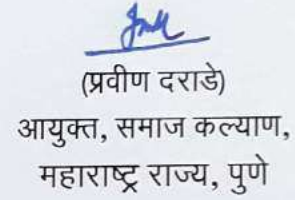 (प्रवीण दराडे)
आयुक्त, समाज कल्याण,
महाराष्ट्र राज्य, पुणे